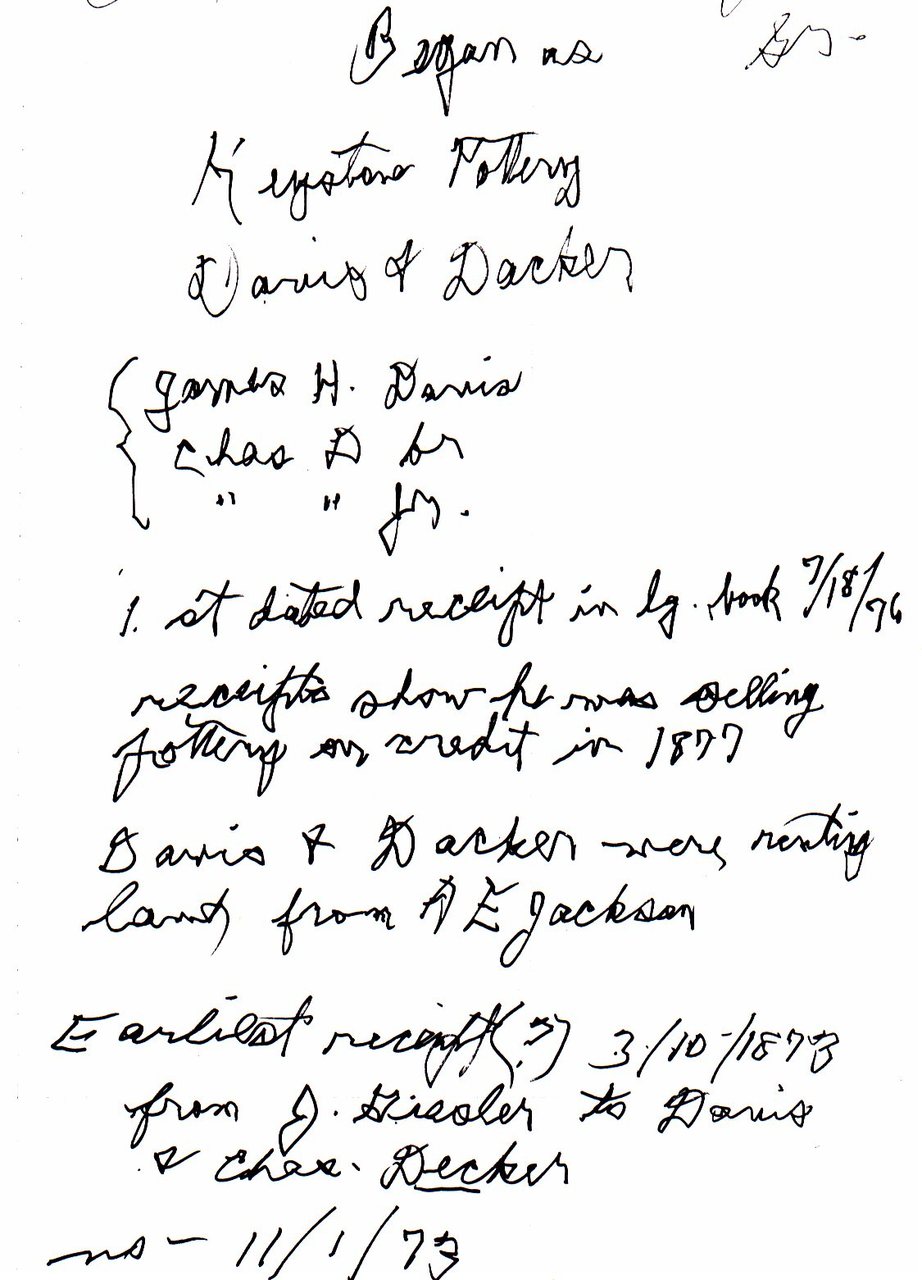 Began as Sr.
Keystone Pottery
Davis & Dacker
James H. Davis
Chas D Sr
" " Jr.
1. st dated receipt in lg. book 7/18/76
receipts show he was selling
pottery on credit in 1877
Davis & Dacker were renting
land from A E Jackson
Earliest receipt (?) 3/10/1873
from J. to Davis
& Chas. Decker
no - 11/1/73